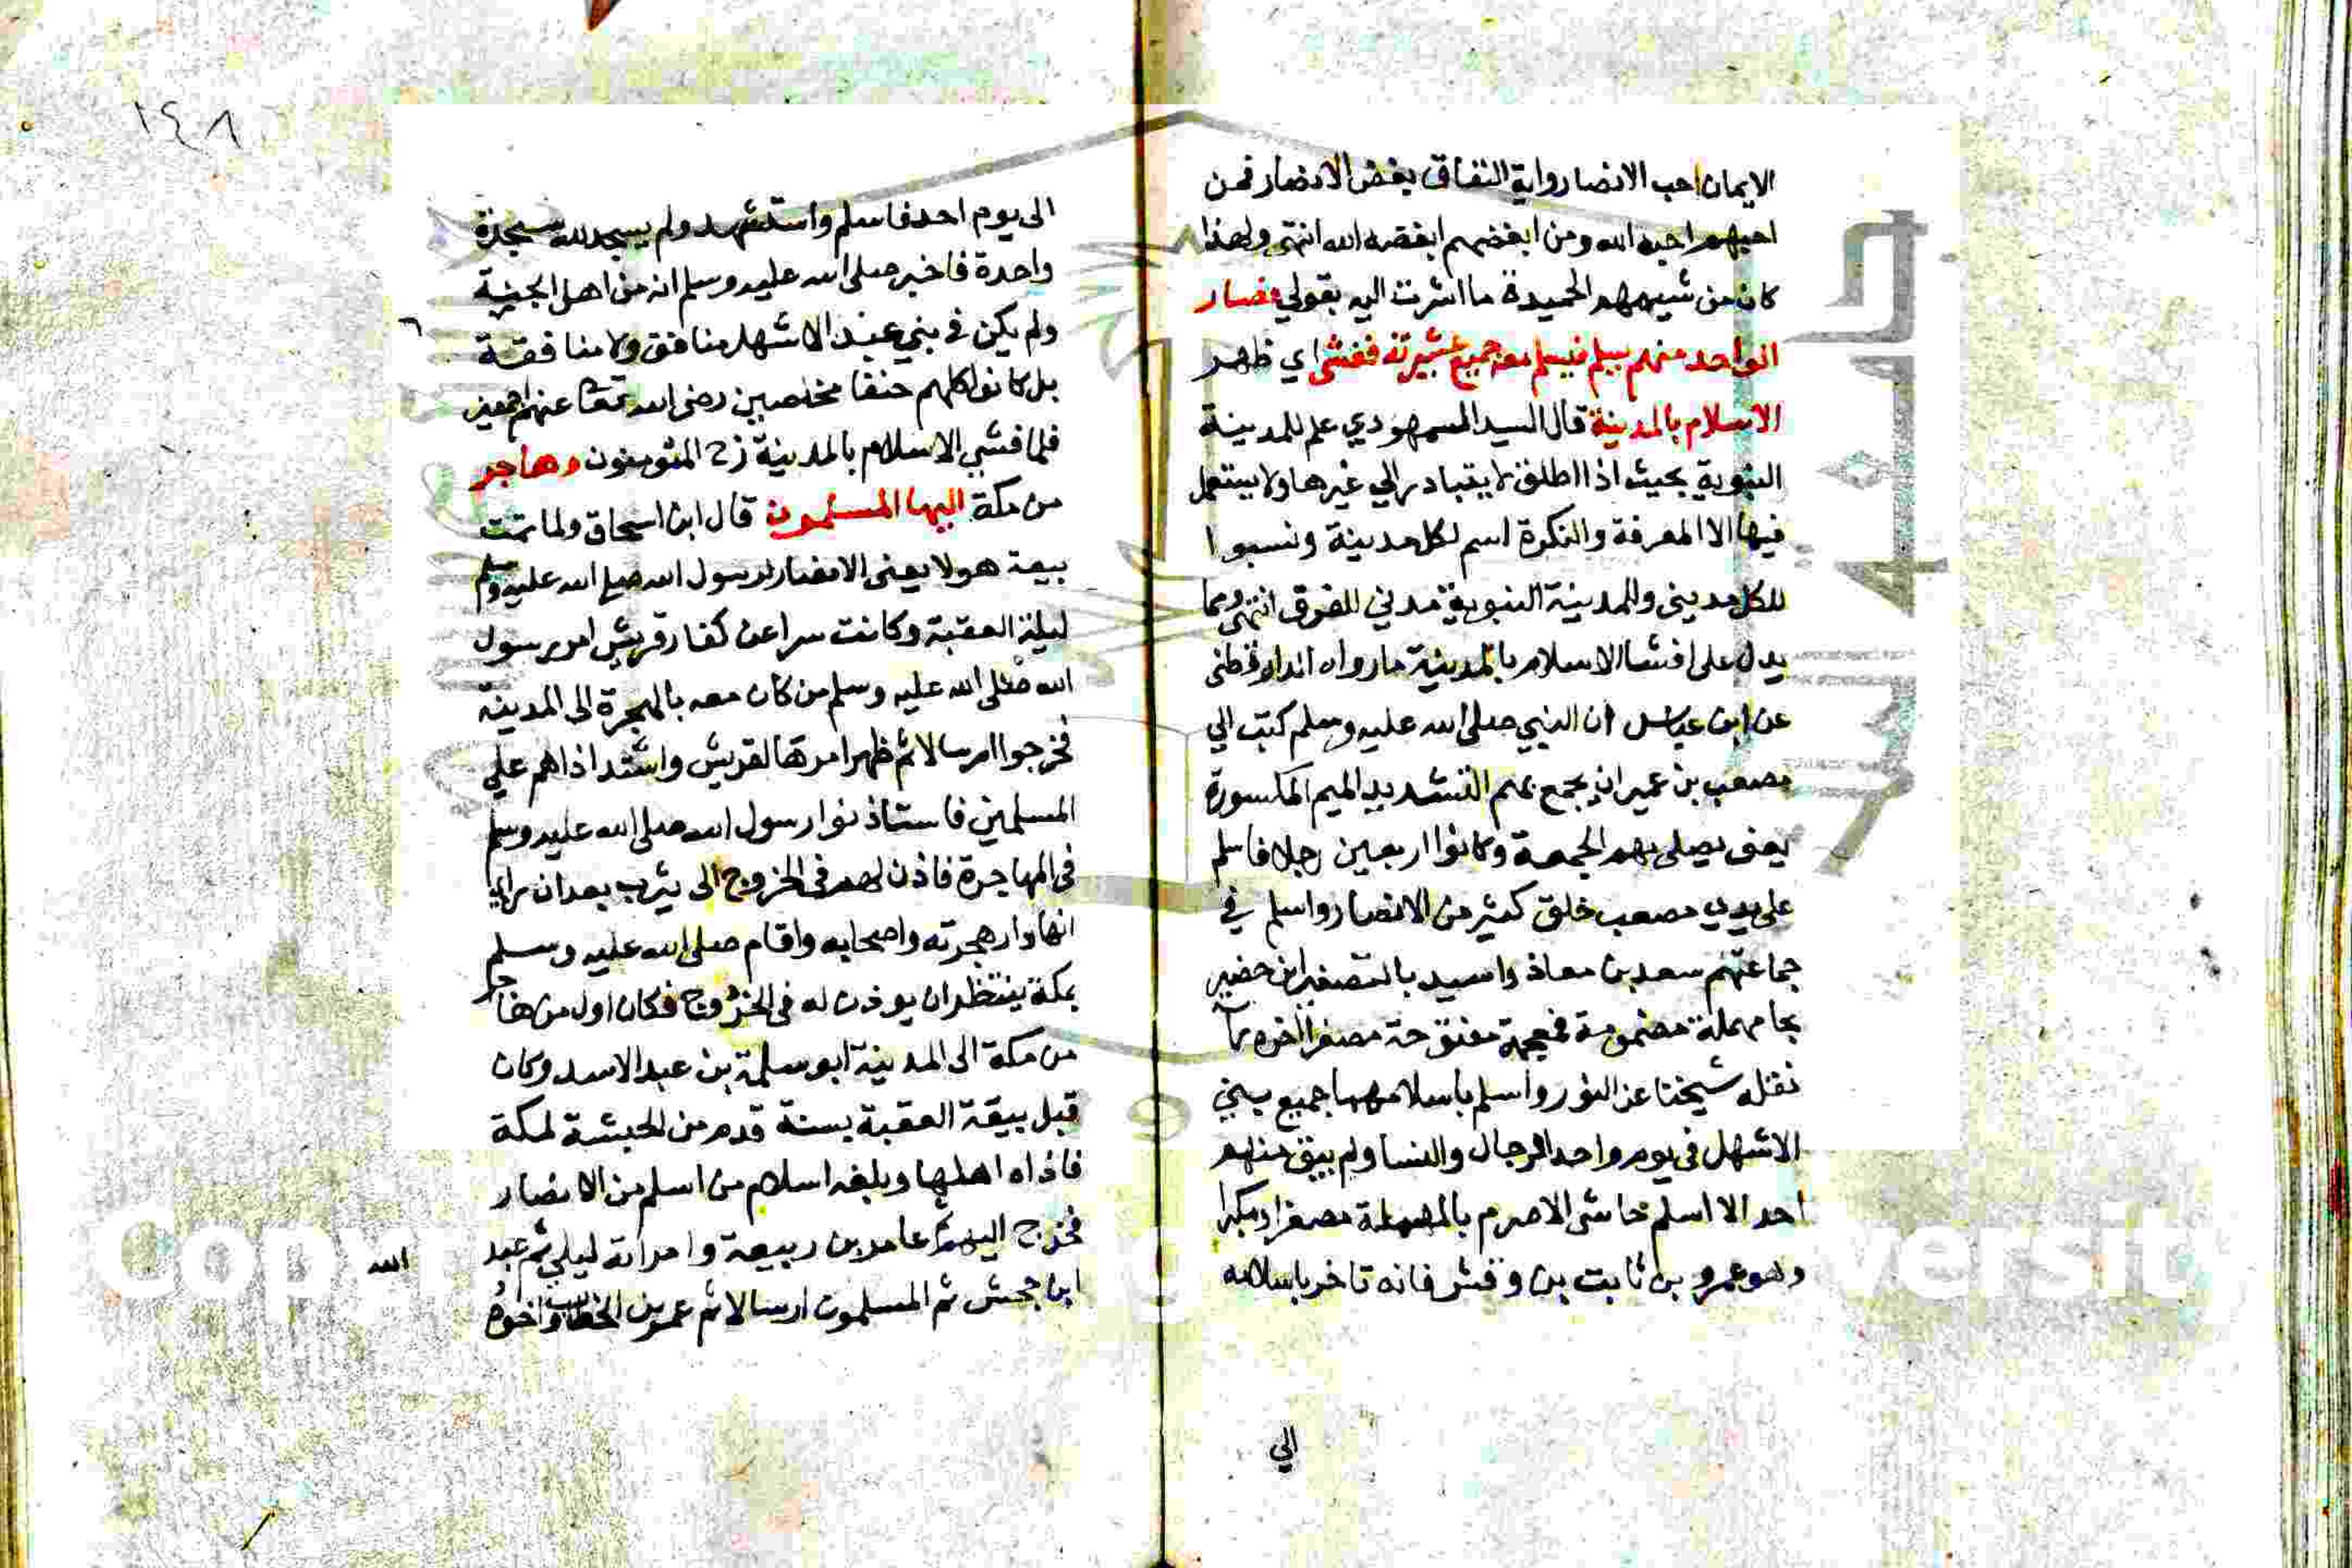 الايمان حب الانصار واية النفاق بغض الانصار فمن
احبهم احبه الله ومن ابغضهم ابغضه الله انتهى ولهذا
كان من شيمهم الحميدة ما اشرت اليه بقولي فصار
الواحد منهم يسلم فيسلم معه جميع عشيرته ففشى اي ظهر
الاسلام بالمدينة قال السيد السمهودي علم للمدينة
النبوية بحيث اذا اطلق لا يتبادر الي غيرها ولا يستعمل
فيها الا المعرفة والنكرة اسم لكل مدينة ونسبوا
للكل مديني وللمدينة النبوية مدني للفرق انتهى ومما
يدل على افشا الاسلام بالمدينة ما رواه الدارقطني
عن ابن عباس ان النبي صلى الله عليه وسلم كتب الي
مصعب بن عمير ان يجمع بهم التشديد الميم المكسورة
يعني يصلي بهم الجمعة وكانوا اربعين رجلا فاسلم
على يدي مصعب خلق كثير من الانصار واسلم في
جماعتهم سعد بن معاذ واسيد بالتصغير ابن حضير
بحا مهملة مضمومة فمعجمة مفتوحة مصغرا اخره را
نقله شيخنا عن النور واسلم باسلامهما جميع بني
الاشهل في يوم واحد الرجال والنسا ولم يبق منهم
احد الا اسلم حاشى الاصرم بالمهملة مصغرا ومكبرا
وهو عمرو بن ثابت بن وقش فانه تاخر باسلامه
الي
١٤٨
الى يوم احد فاسلم واستشهد ولم يسجد لله سجدة
واحدة فاخبر صلى الله عليه وسلم انه من اهل الجنة
ولم يكن في بني عبد الاشهل منافق ولا منافقة
بل كانوا كلهم حنفا مخلصين رضى الله تعا عنهم اجمعين
فلما فشي الاسلام بالمدينة المؤمنون وهاجر
من مكة اليها المسلمون قال ابن اسحاق ولما تمت
بيعة هولا يعنى الانصار لرسول الله صلي الله عليه وسلم
ليلة العقبة وكانت سرا عن كفار قريش امر رسول
الله صلى الله عليه وسلم من كان معه بالهجرة الى المدينة
فخرجوا ارسالا ثم ظهر امرها لقريش واشتد اذاهم علي
المسلمين فاستاذنوا رسول الله صلى الله عليه وسلم
في المهاجرة فاذن لهم في الخروج الى يثرب بعد ان راي
انها دار هجرته واصحابه واقام صلى الله عليه وسلم
بمكة ينتظر ان يوذن له في الخروج فكان اول من هاجر
من مكة الى المدينة ابو سلمة بن عبد الاسد وكان
قبل بيعة العقبة بسنة قدم من الحبشة لمكة
فاذاه اهلها وبلغه اسلام من اسلم من الانصار
فخرج اليهم ثم عامر بن ربيعة وامراته ليلي ثم عبد
الله
ابن جحش ثم المسلمون ارسالا ثم عمر بن الخطاب واخوه